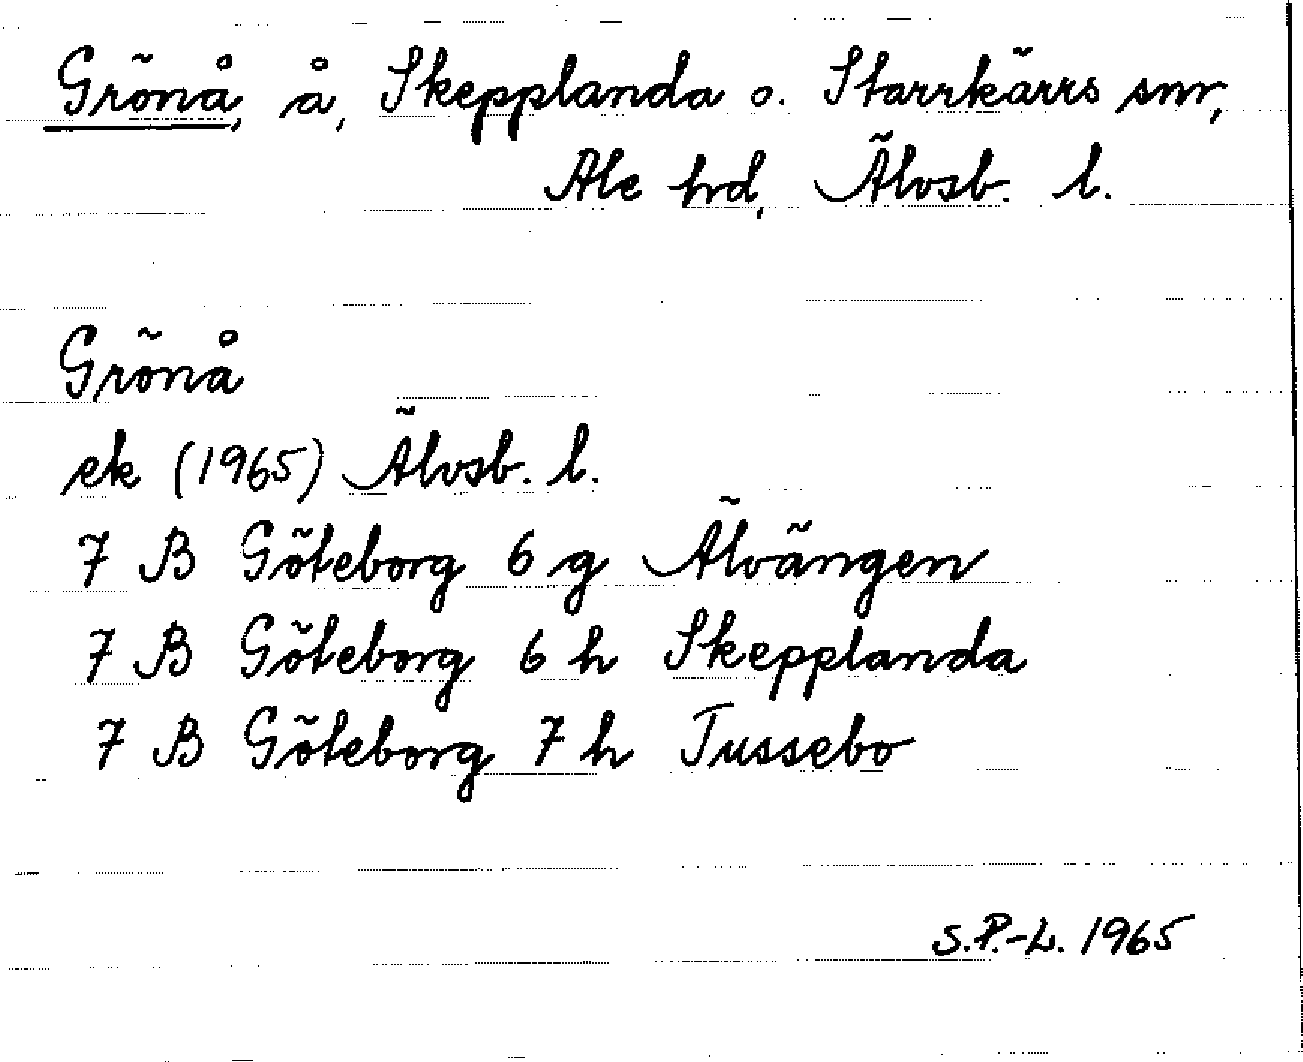 Grönå, å, Skepplanda o. Starrkärrs snr,
Ale hd, Älvsb. l.
Grönå
ek (1965) Älvsb. l.
7 B Göteborg 6 g Älvängen
7 B Göteborg 6 h Skepplanda
7 B Göteborg 7 h Tussebo
S.P.-L. 1965